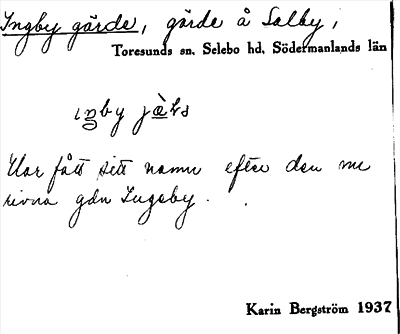 Ingby gärde, gärde å Salby,
Toresunds sn. Selebo hd. Södermanlands län
ıŋby jæ̀ḷs
Har fått sitt namn efter den nu
rivna gdn Ingeby.
Karin Bergström 1937